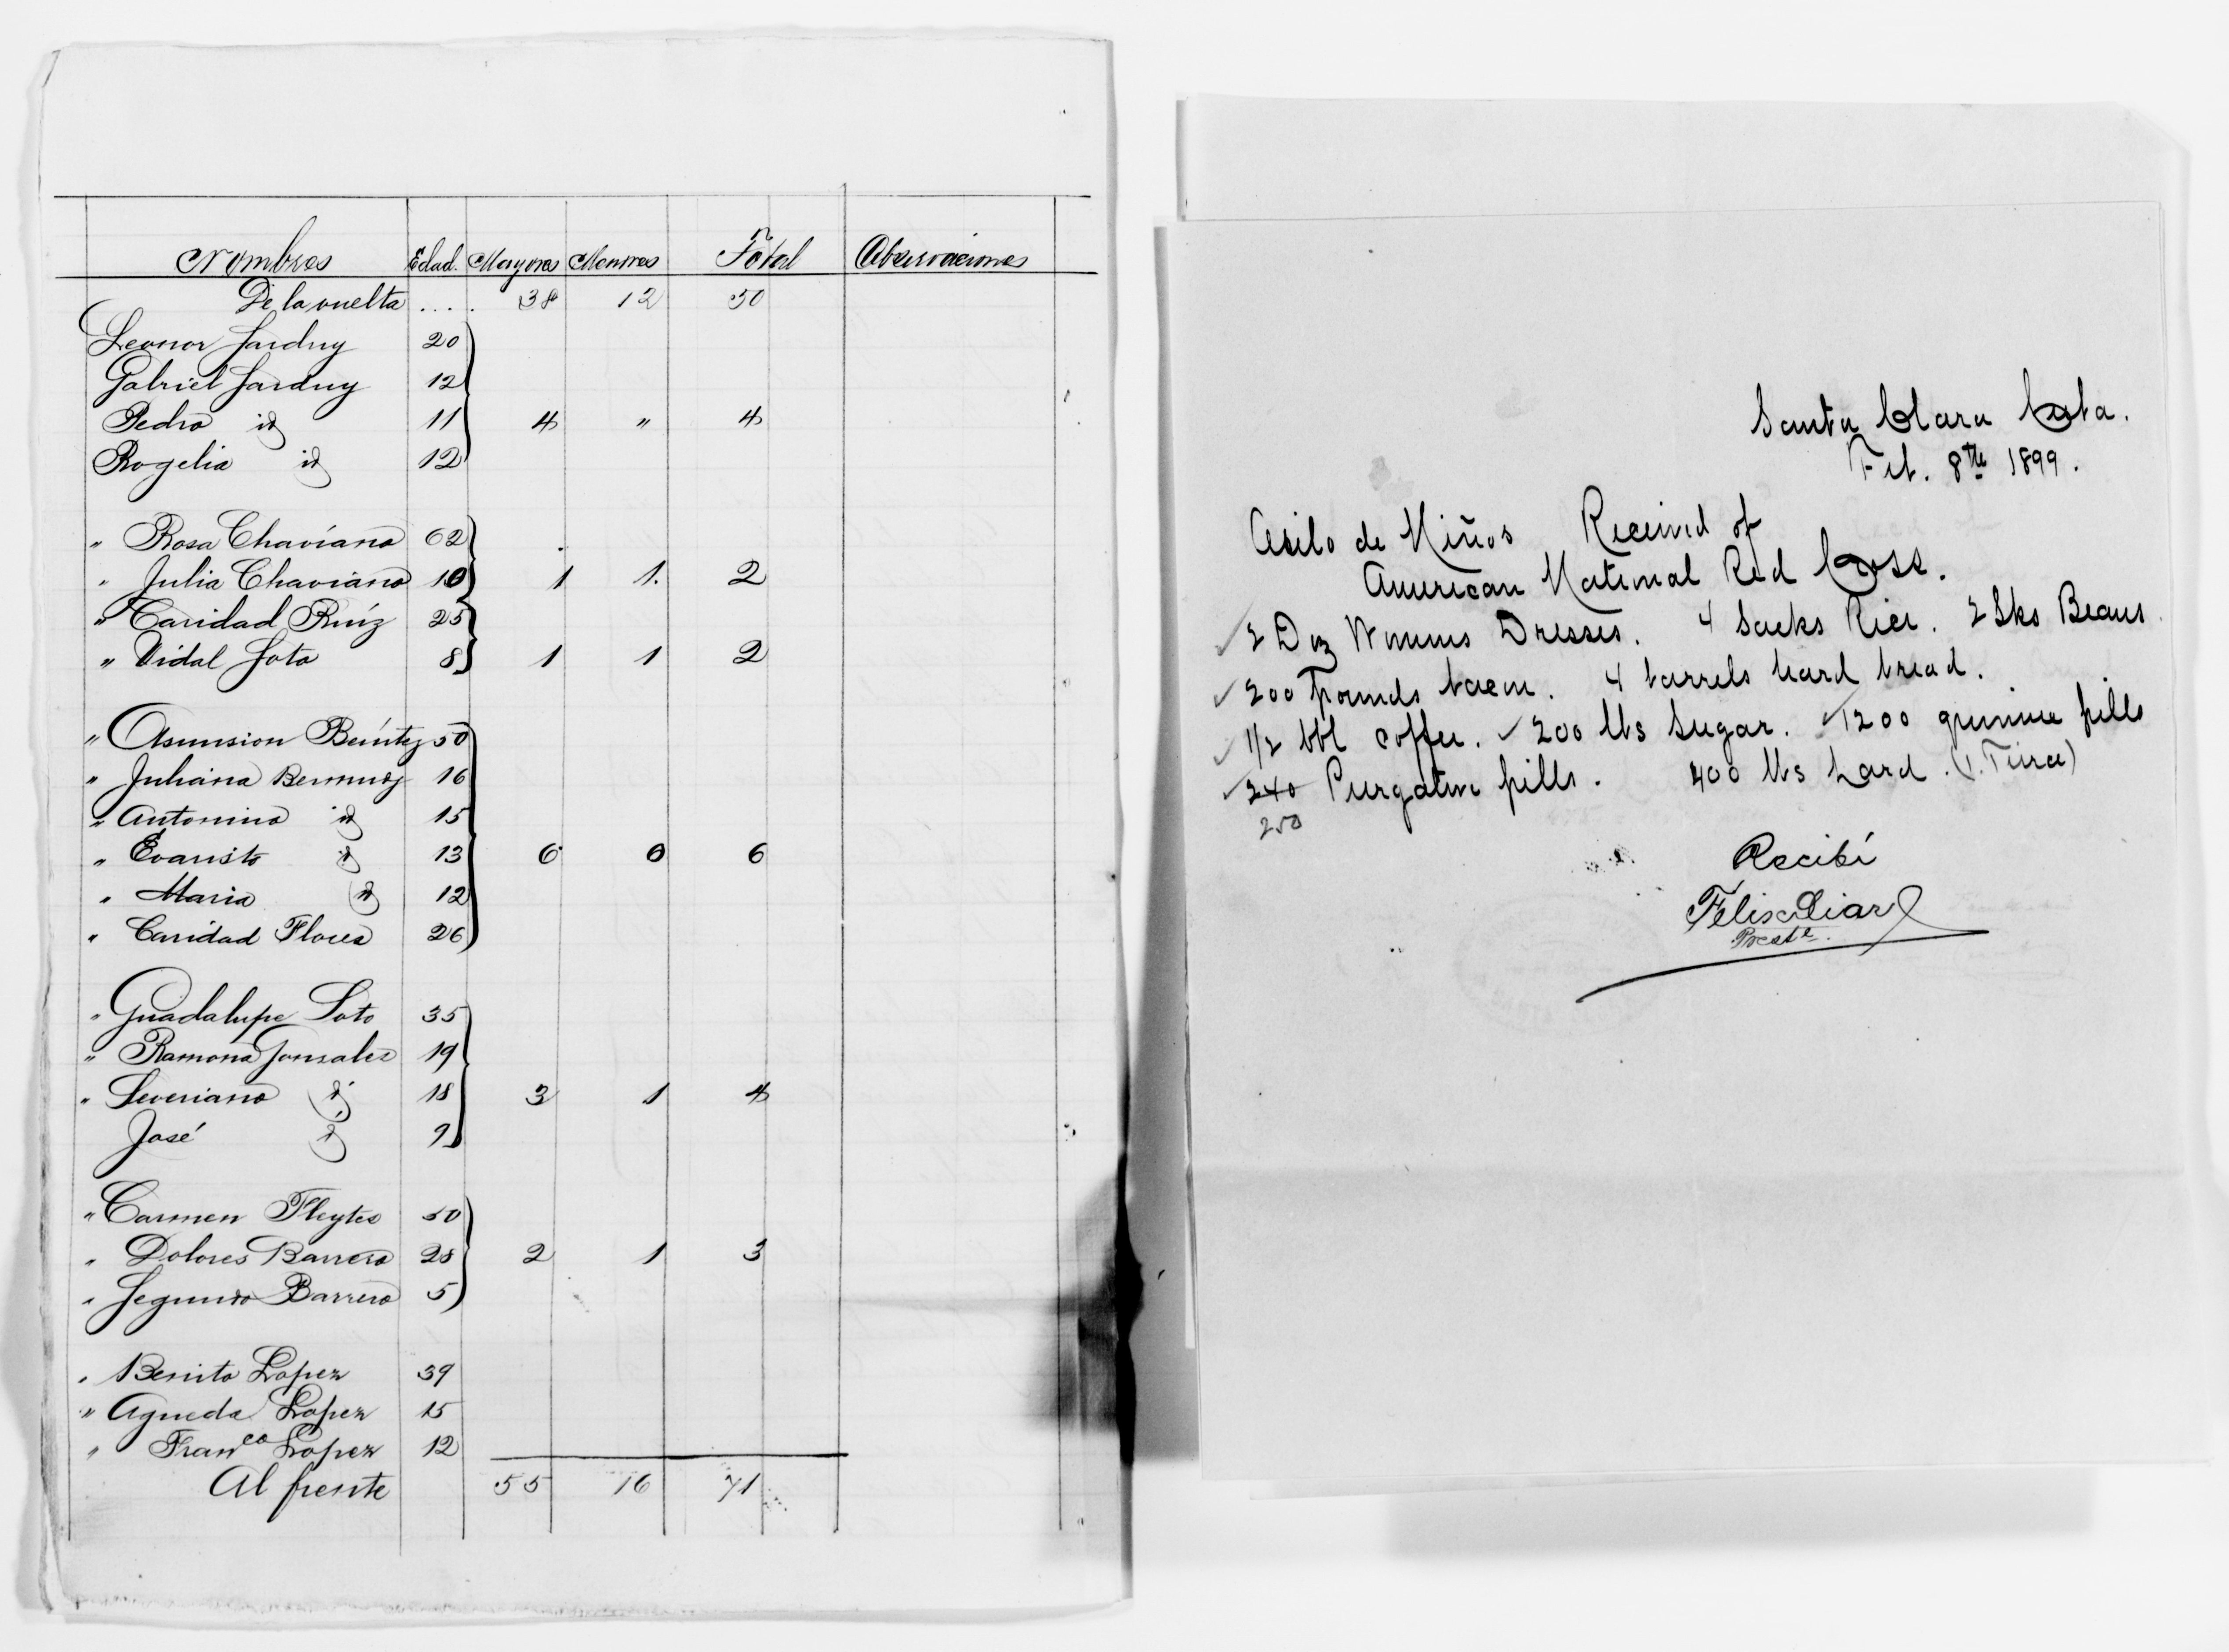 Nombres Edad. Mayores Menores Total Observaciones
De la vuelta .... 38 12 50
Leonor Sarduy 20
Gabriel Sarduy 12
Pedro id 11 4 " 4
Rogelia id 12
" Rosa Chaviano 62
" Julia Chaviano 10 1 1. 2
" Caridad Ruíz 25
" Vidal Soto 8 1 1 2
" Asunsion Benítez 50
" Juliana Bermudz 16
" Antonino id 15
" Evaristo id 13 6 0 6
" Maria id 12
" Caridad Flores 26
" Guadalupe Soto 35
" Ramona Gonsales 19
" Severiano id 18 3 1 4
José id 9
" Carmen Fleytes 50
" Dolores Barrero 28 2 1 3
" Segundo Barrero 5
" Benito Lopez 39
" Agueda Lopez 15
" Franco Lopez 12
Al frente 55 16 71
Santa Clara Cuba.
Feb. 8th 1899.
Asilo de Niños Received of
American National Red Cross.
✓ 2 Doz Womens Dresses. 4 Sacks Rice. 2 Sks Beans.
✓ 200 Pounds bacon. 4 barrels hard bread.
✓ 1/2 bbl coffee. ✓ 200 lbs Sugar. ✓ 1200 quinine pills
✓ 240 Purgative pills. 400 lbs Lard. (1. Tierce)
250
Recibí
Felix Liar
Preste.